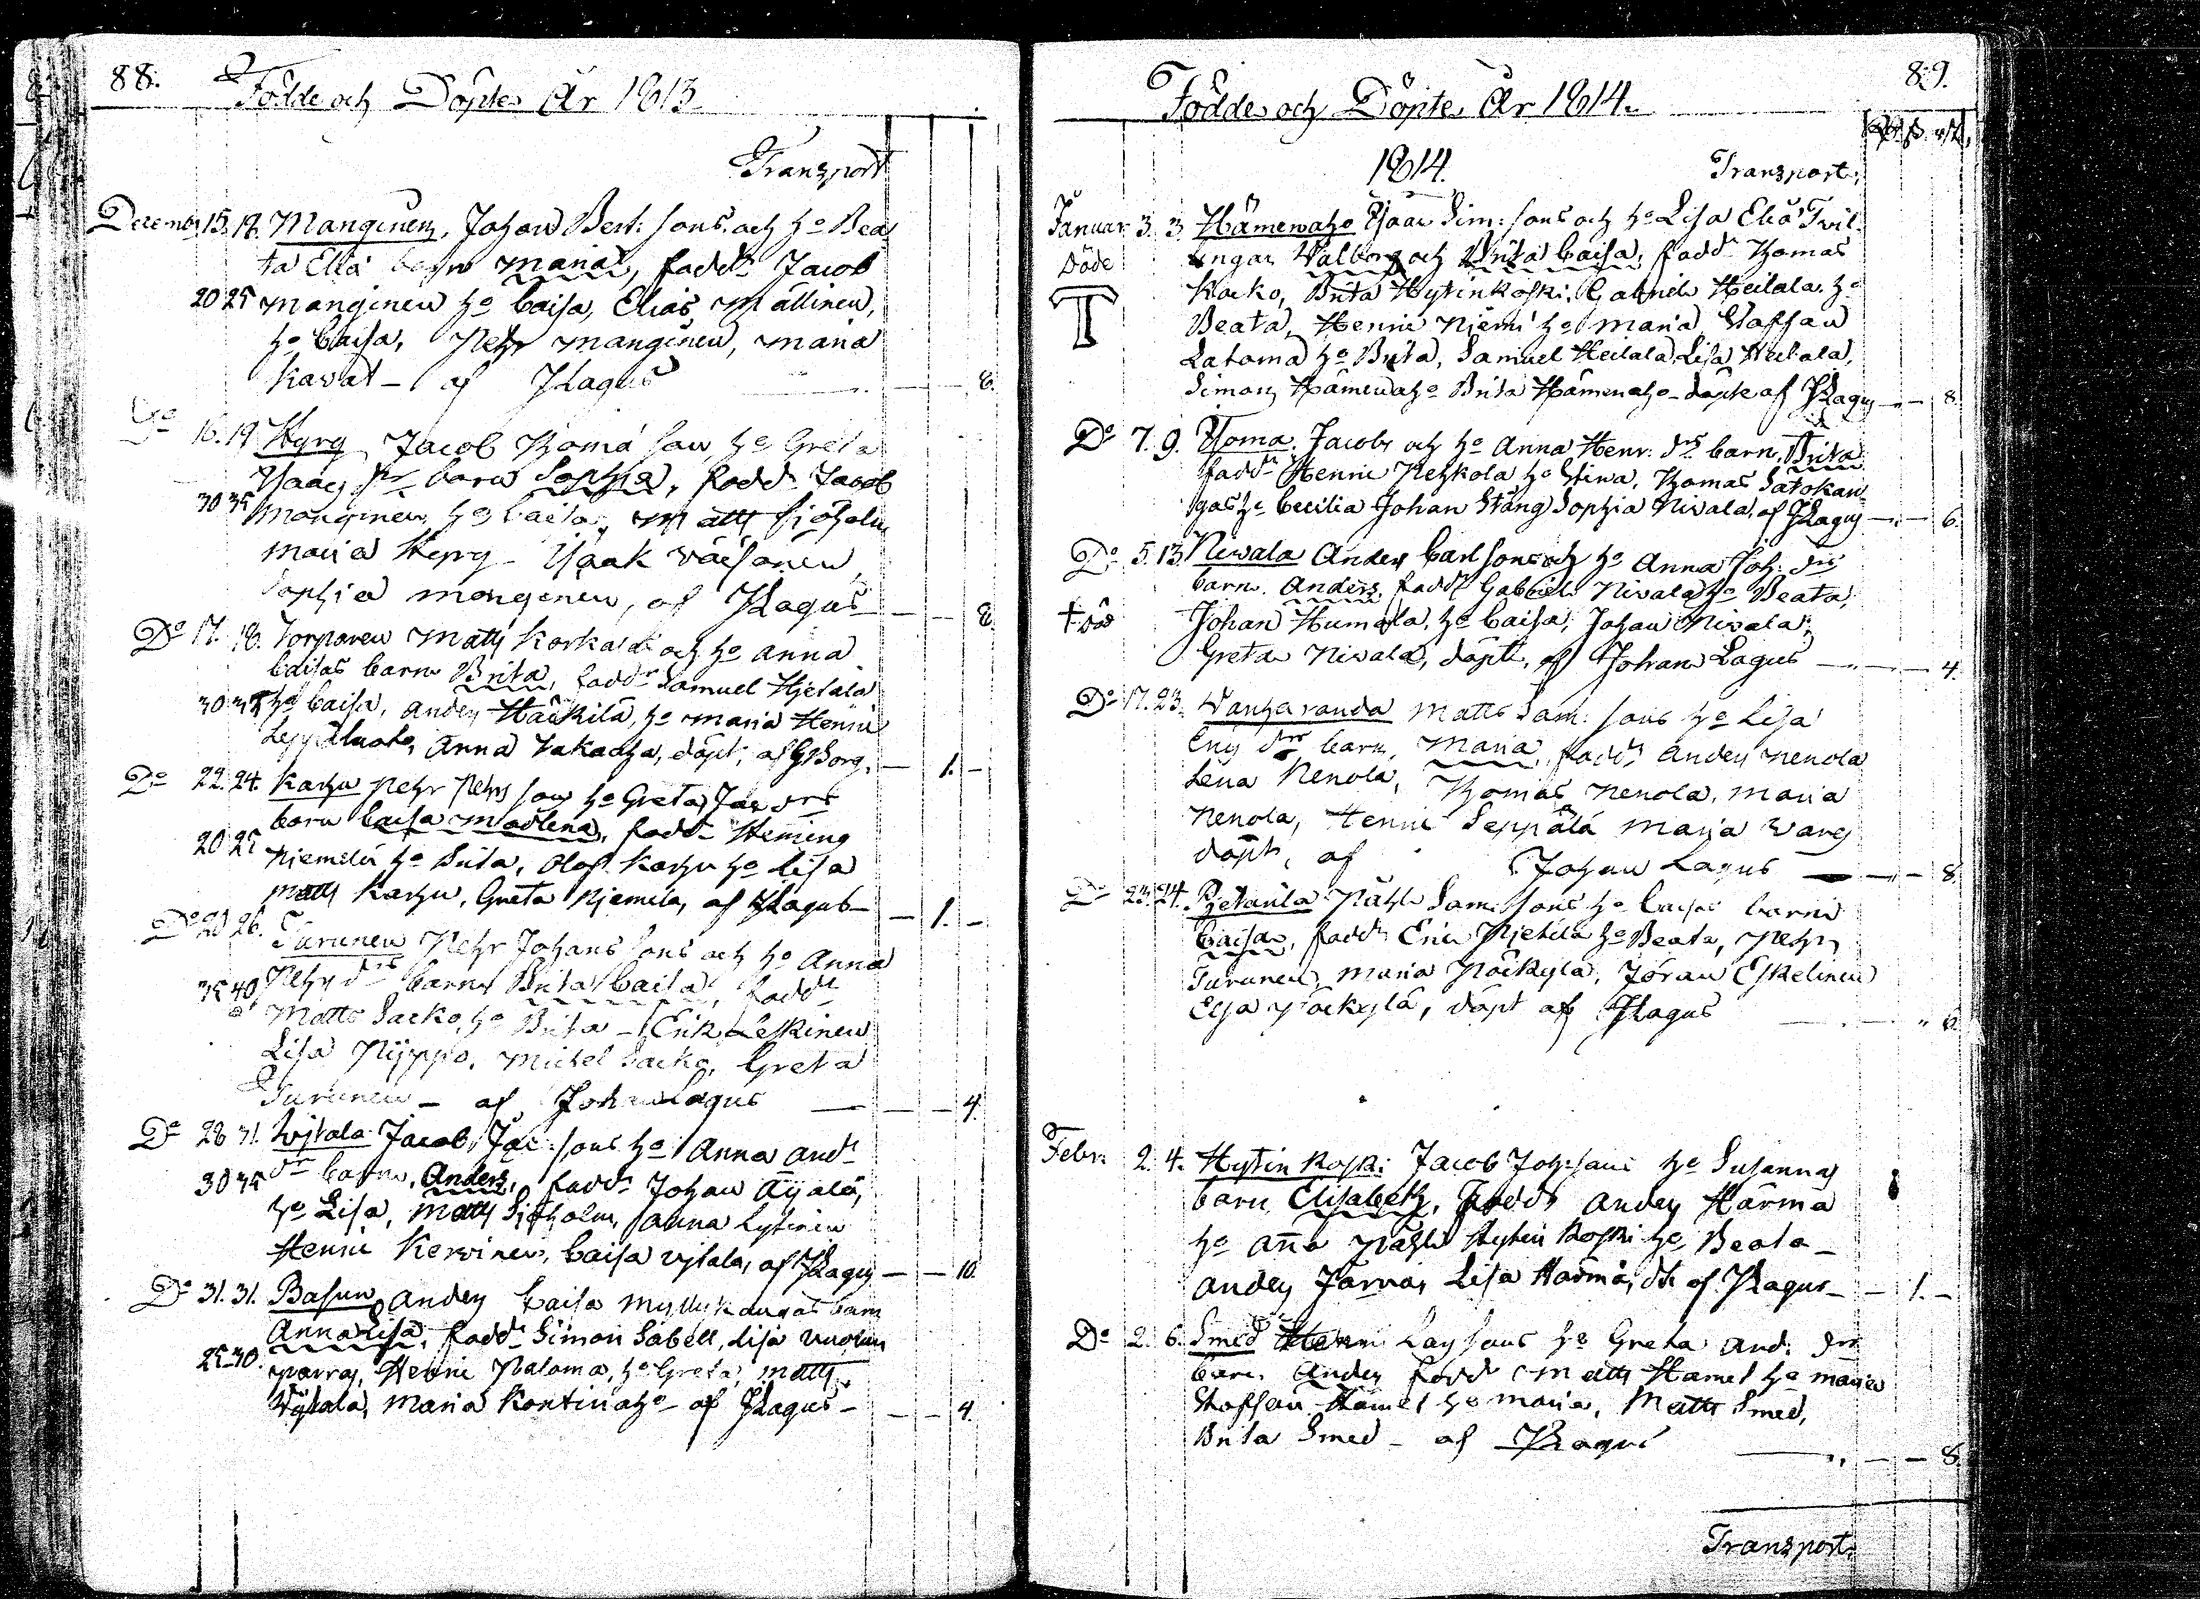 88.
Födde och Döpte År 1813
Transport
Decemb 15. 18. Manginen, Johan Bert: sons och ho Bea
ta Eliä barn Maria, fadd. Jacob
20 25 Manginen ho Caisa, Elias Mällinen,
ho Caisa, Pehr Manginen, Maria
Kavat - af JLagus 8.
Do 16. 19 Kyrg Jacob Thomä son, ho Greta
barn Sophia, fadd. Jacob
30 35 Manginen, ho Caisa, Matts Sjöholm
Maria Kyrg Isaak Väisänen,
Sophia Mangenen, af JLagus 8
Do 17. 18. Torparen Matts Korkala och ho Anna
Caisas barn Brita, fadd. Samuel Hjetala
30 35 ho Caisa, Anders Häckilä, ho Maria Henric
Leppäluoto, Anna Takaoja, döpt, af GBorg. 1. -
Do 22. 24. Karhu Pehr Pehrs son ho Greta Jac drs
barn Caisa Madlena, fadd. Heming
20 25 Niemelä ho Brita, Olof Karhu ho Lisa
Matts Karhu, Greta Njemelä, af JLagus - 1. -
Do 26. Turunen Pehr Johans sons och ho Anna
Pehrs drs barn Brita Caisa, fadd.
35 40 Matts Sacko, ho Brita - Erik Leskinen
Lisa Nyppo, Michel Sacko, Greta
Turunen - af Johan Lagus 4.
Do 28 31. Wjtala Jacob Jac: sons ho Anna And.
30 35 dr barn, Anders, fadd. Johan Äijälä,
ho Lisa, Matts Sjöholm, Anna Lytinen
Henric Kervinen, Caisa Vjtala, af JLagus - 10.
Do 31. 31. Basun Anders Caisa Myllykangas barn
Anna Lisa, fadd. Simon Sabell, Lisa
25. 30. Henric Paloma, ho Greta, Matts
Wjtala, Maria Kontinaho - af JLagus - 4.
89.
Födde och Döpte År 1814.
1814. Transport.
Januar 3. 3. Hämenaho Isaac Sim: sons och ho Lisa Eliä Tvil
Döde ingar Valborg och Brita Caisa, fadd. Thomas
Kocko, Brita Hytinkoski, Gabriel Heilala ho
Beata, Henric Njemi ho Maria, Staffan
Latoma ho Brita, Samuel Heilala, Lisa Heilala,
Simon Hämenaho Brita Hämenaho - döpte af JLagus 8.
Do 7. 9. Thoma Jacobs och ho Anna Henr. drs barn, Brita
fadd. Henric Pehkola ho Stina, Thomas Satokan
gas ho Cecilia Johan Stång Sophia Nivala, af JLagus - 6.
Do 5. 13. Nivala Anders Carl sons och ho Anna Joh. drs
barn. Anders, fadd. Gabriel Nivala ho Beata,
död Johan Humala, ho Caisa, Johan Nivala,
Greta Nivala, döpt, af Johan Lagus - 4.
Do 17. 23. Vanharanda Matts Sam: sons ho Lisa
Erics drs barn, Maria, fadd. Anders Nenola
Lena Nenola, Thomas Nenola, Maria
Nenola, Henric Seppälä Maria Varg
döpt, af Johan Lagus - 8.
Do 23. 24. Pjetarila Påhl Sam: sons ho Caisas barn
Caisa, fadd. Eric Pjetilä ho Beata, Pehr
Turunen, Maria Näckylä, Jöran Eskelinen
Elsa Näckylä, döpt af JLagus 6.
Febr. 2. 4. Hytinkoski Jacob Joh: sons ho Susannas
barn Elisabeth, fadd. Anders Härmä
ho Anna Påhl Hytinkoski ho Beata -
Anders Järvas, Lisa Härmä, dt af JLagus - 1. -
Do 2. 6. Smed Henric Lars sons ho Greta And: drs
barn. Anders fadd. Matts Hamel ho Maria
Staffan Hamel ho Maria, Matts Smed,
Brita Smed - af JLagus 8.
Transport.